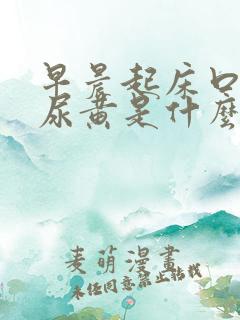 早晨起床口
尿黄是什麼
麦萌漫畫
未经同意禁止转载